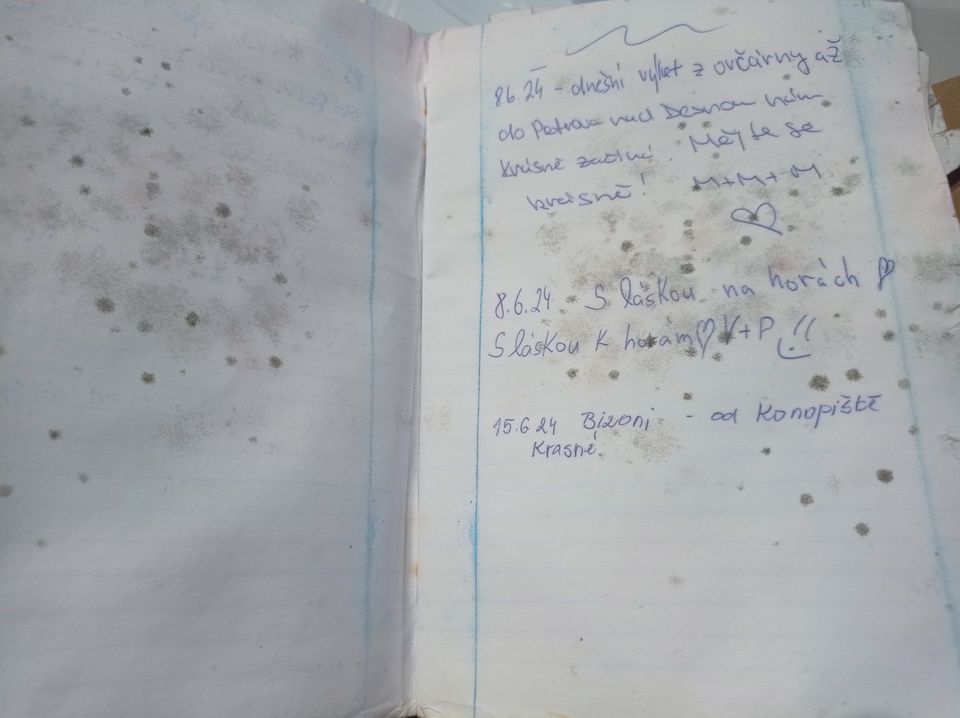 8.6.24 - dnešní výlet z ovčárny až
do Petrova nad Desnou nám
krásně začíná. Mějte se
krásně! M+M+M.
8.6.24 S láskou na horách
S láskou k horám V+P
15.6 24 Bizoni - od Konopiště
Krasné.